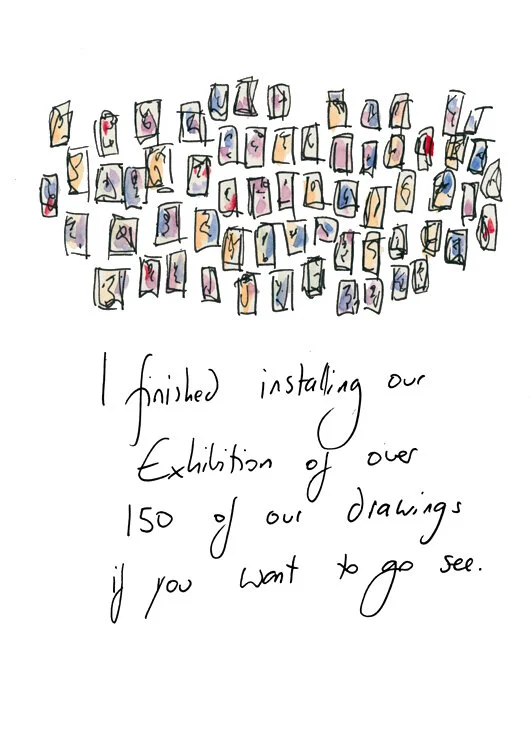 I finished installing our
Exhibition of over
150 of our drawings
if you want to go see.